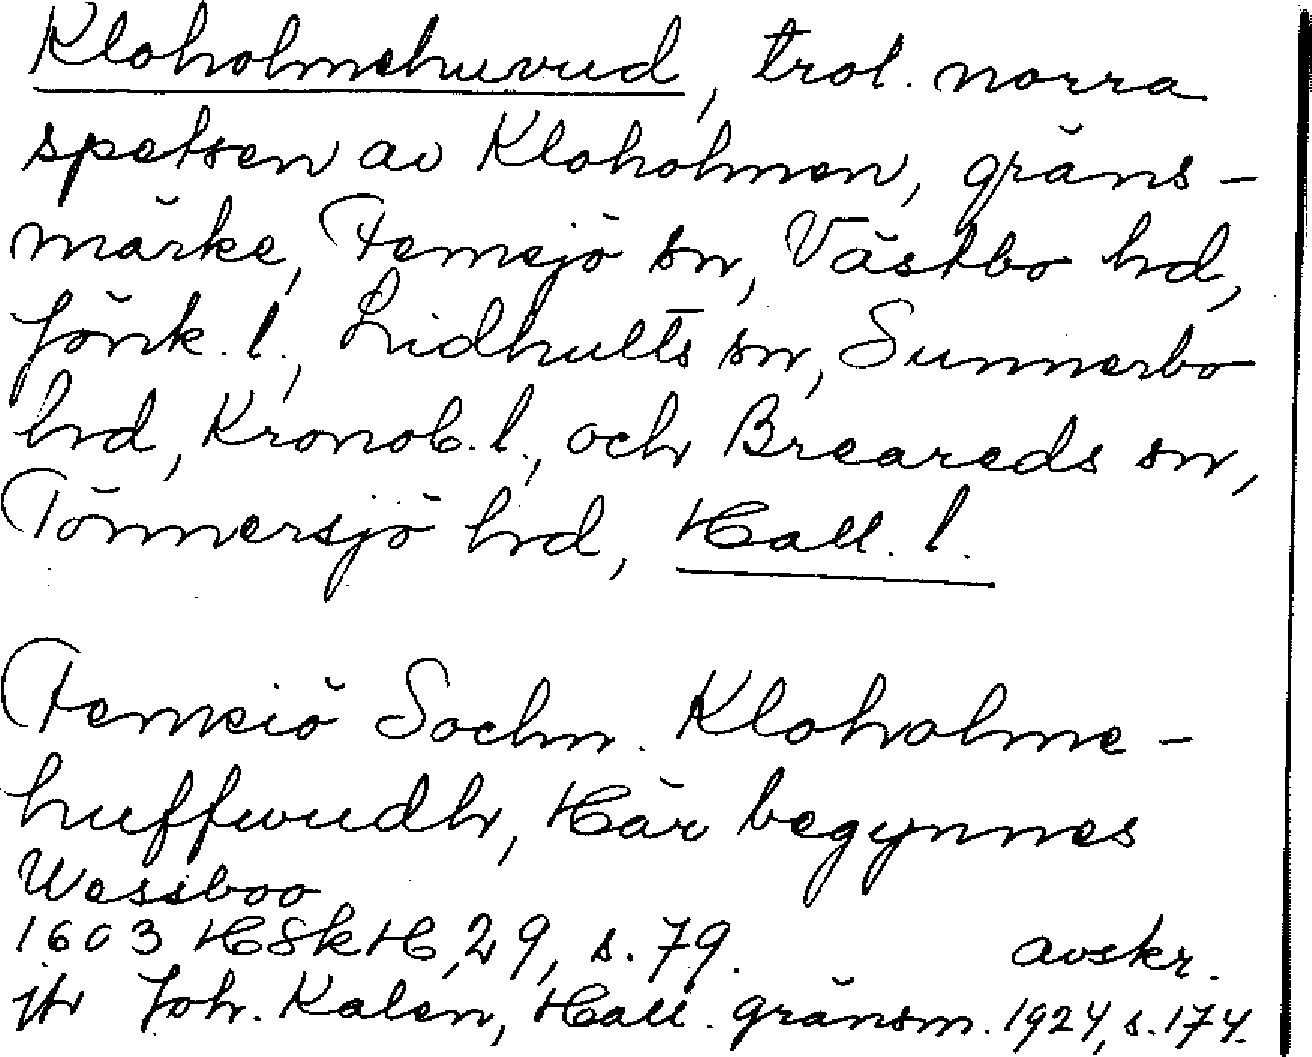 Kloholmehuvud, trol. norra
spetsen av Kloholmen, gräns-
märke, Femsjö sn, Västbo hd,
Jönk. l., Lidhults sn, Sunnerbo
hd, Kronob. l., och Breareds sn,
Tönnersjö hd, Hall. l.
Femsiö Sochn. Kloholme-
huffwudh, Här begynnes
Wessboo
1603 HSkH, 29, s. 79. avskr.
jfr Joh. Kalén, Hall. gränsm. 1924, s. 174.